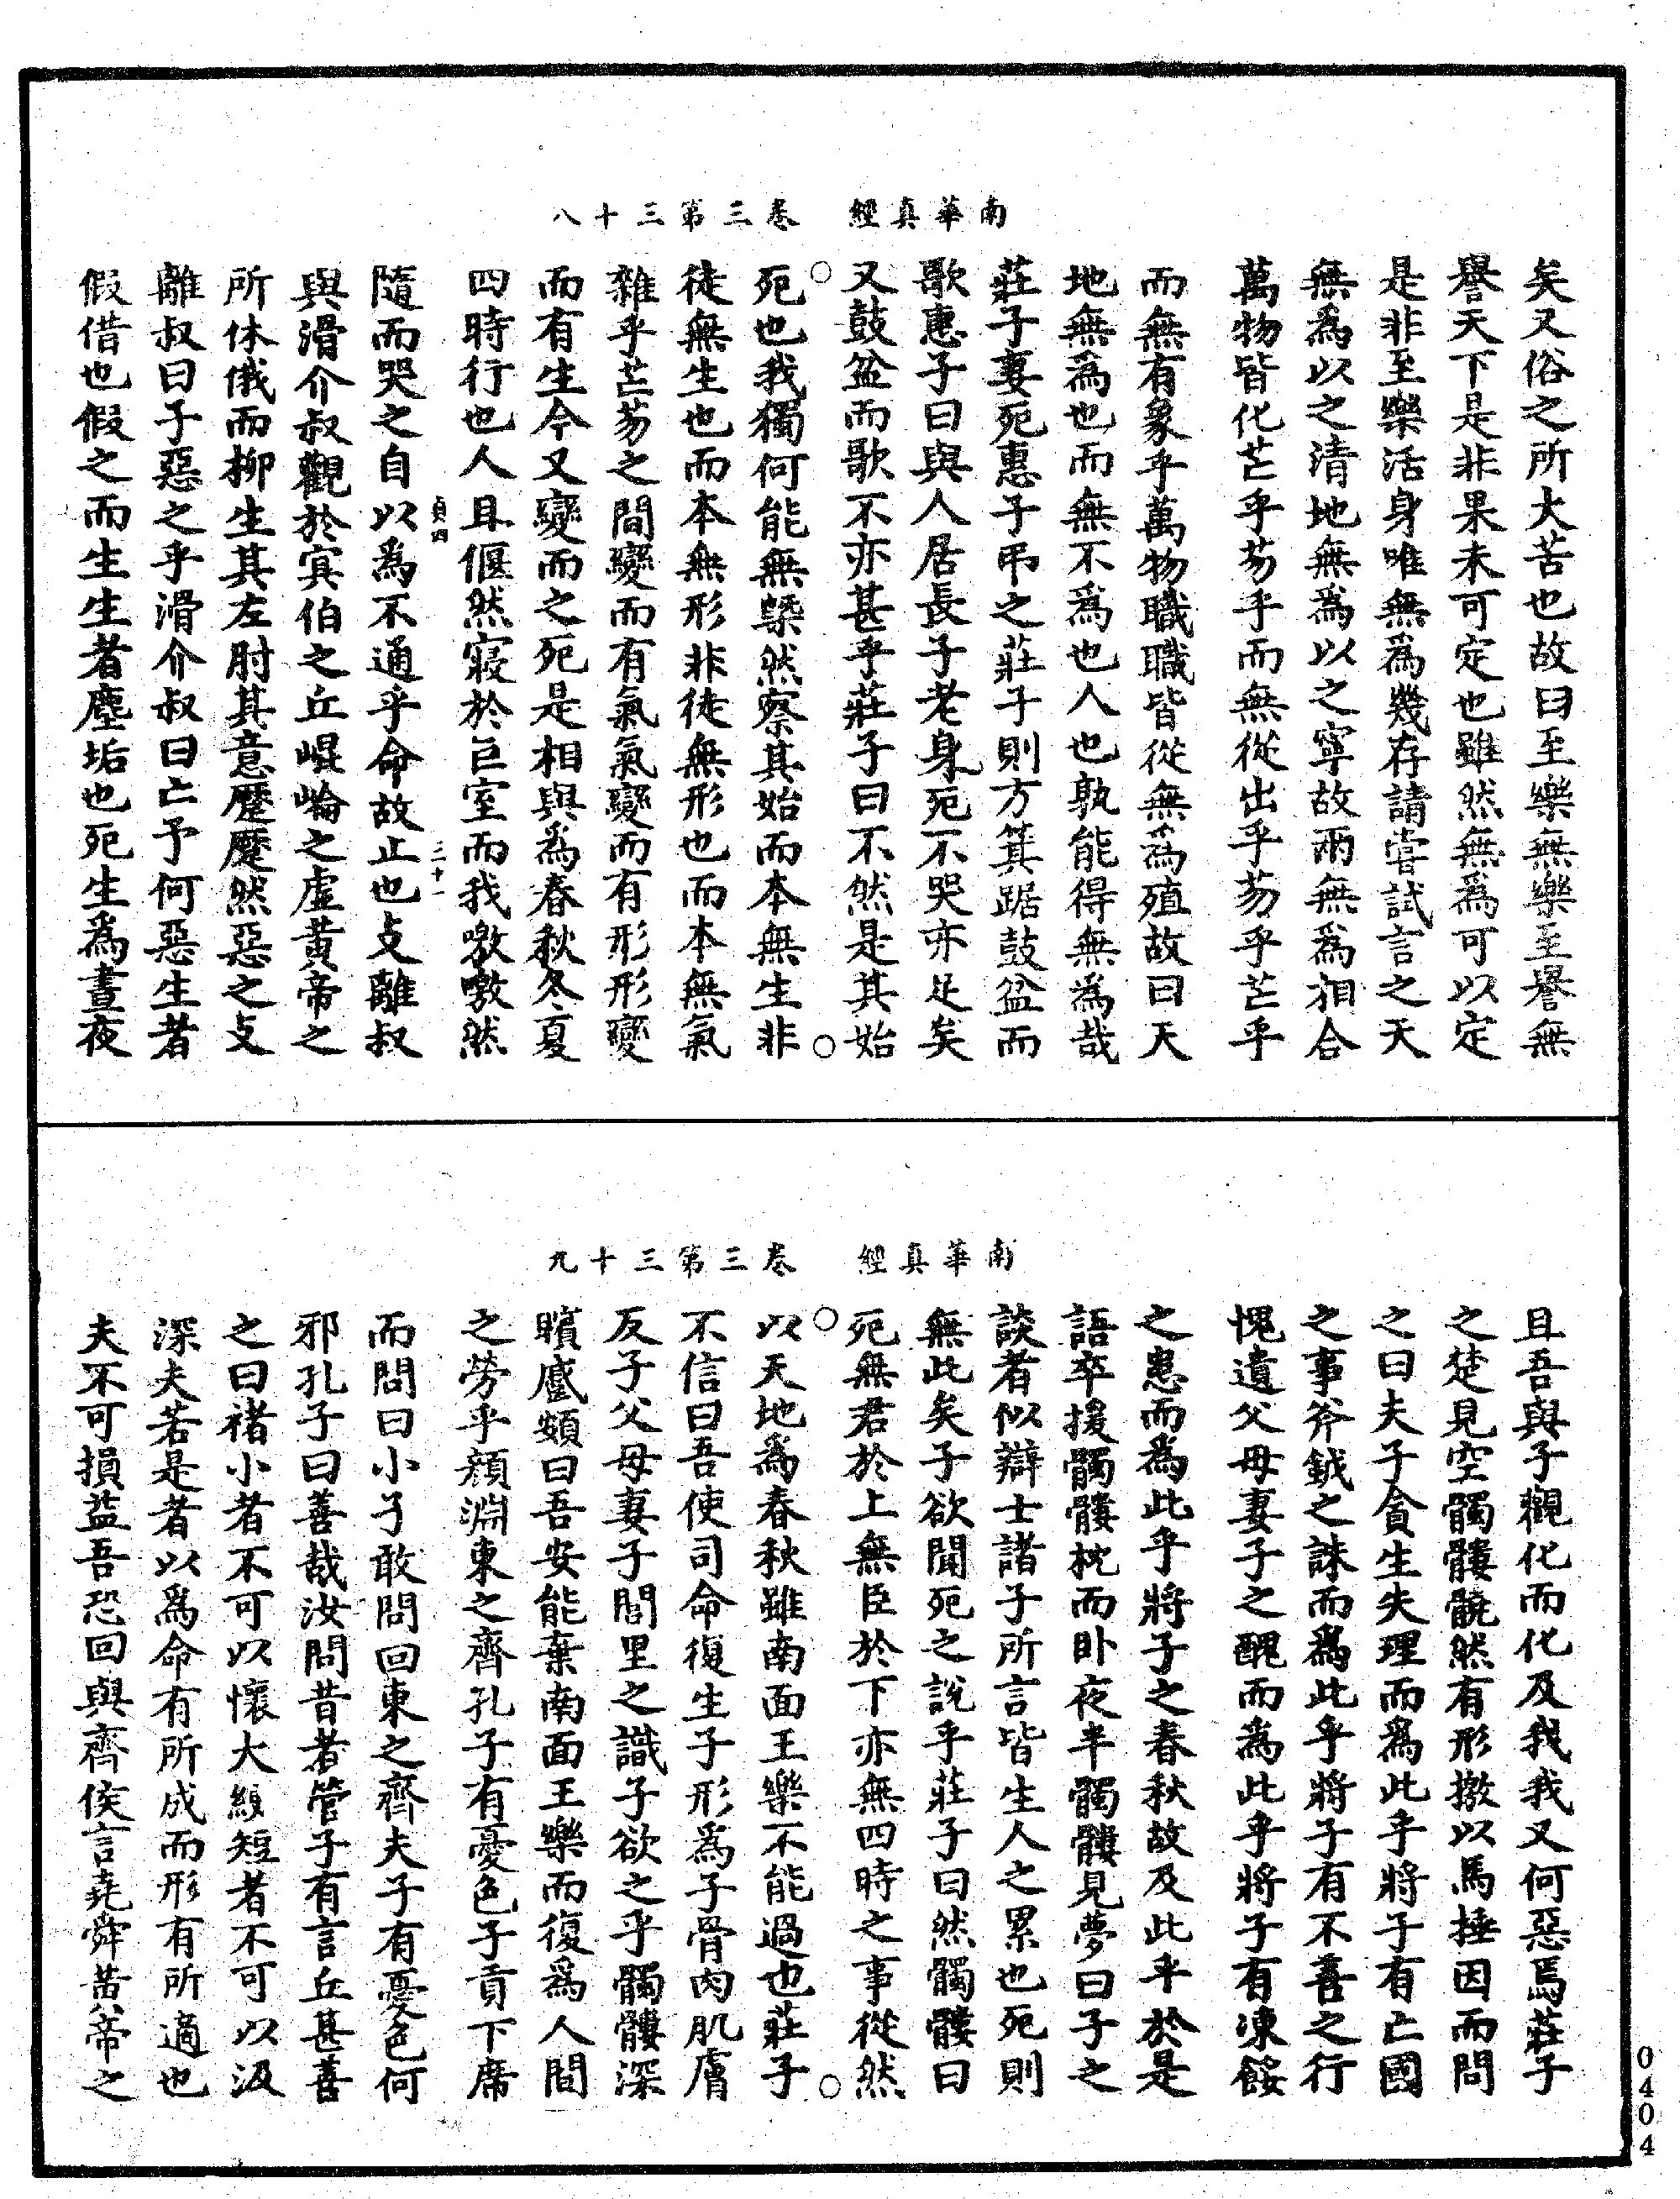 南華真經　卷三第三十八
矣又俗之所大苦也故曰至樂無樂至譽無
譽天下是非果未可定也雖然無爲可以定
是非至樂活身唯無爲幾存請嘗試言之天
無爲以之清地無爲以之寧故兩無爲相合
萬物皆化芒乎芴乎而無從出乎芴乎芒乎
而無有象乎萬物職職皆從無爲殖故曰天
地無爲也而無不爲也人也孰能得無爲哉
莊子妻死惠子吊之莊子則方箕踞鼓盆而
歌惠子曰與人居長子老身死不哭亦足矣
又鼓盆而歌不亦甚乎莊子曰不然是其始
○　○
死也我獨何能無槩然察其始而本無生非
徒無生也而本無形非徒無形也而本無氣
雜乎芒芴之間變而有氣氣變而有形形變
而有生今又變而之死是相與爲春秋冬夏
四時行也人且偃然寢於巨室而我噭噭然
貞四　三十一
隨而哭之自以爲不通乎命故止也支離叔
與滑介叔觀於寘伯之丘崐崘之虛黃帝之
所休俄而柳生其左肘其意蹷蹷然惡之支
離叔曰子惡之乎滑介叔曰亡予何惡生者
假借也假之而生生者塵垢也死生爲晝夜
南華真經　卷三第三十九
且吾與子觀化而化及我我又何惡焉莊子
之楚見空髑髏髐然有形撽以馬捶因而問
之曰夫子貪生失理而爲此乎將子有亡國
之事斧鉞之誅而爲此乎將子有不善之行
愧遺父母妻子之醜而爲此乎將子有凍餒
之患而爲此乎將子之春秋故及此乎於是
語卒援髑髏枕而卧夜半髑髏見夢曰子之
談者似辯士諸子所言皆生人之累也死則
無此矣子欲聞死之說乎莊子曰然髑髏曰
死無君於上無臣於下亦無四時之事從然
○　○
以天地爲春秋雖南面王樂不能過也莊子
不信曰吾使司命復生子形爲子骨肉肌膚
反子父母妻子閭里之識子欲之乎髑髏深
矉蹙頞曰吾安能棄南面王樂而復爲人間
之勞乎顏淵東之齊孔子有憂色子貢下席
而問曰小子敢問回東之齊夫子有憂色何
邪孔子曰善哉汝問昔者管子有言丘甚善
之曰褚小者不可以懷大綆短者不可以汲
深夫若是者以爲命有所成而形有所適也
夫不可損益吾恐回與齊侯言堯舜黃帝之
0404